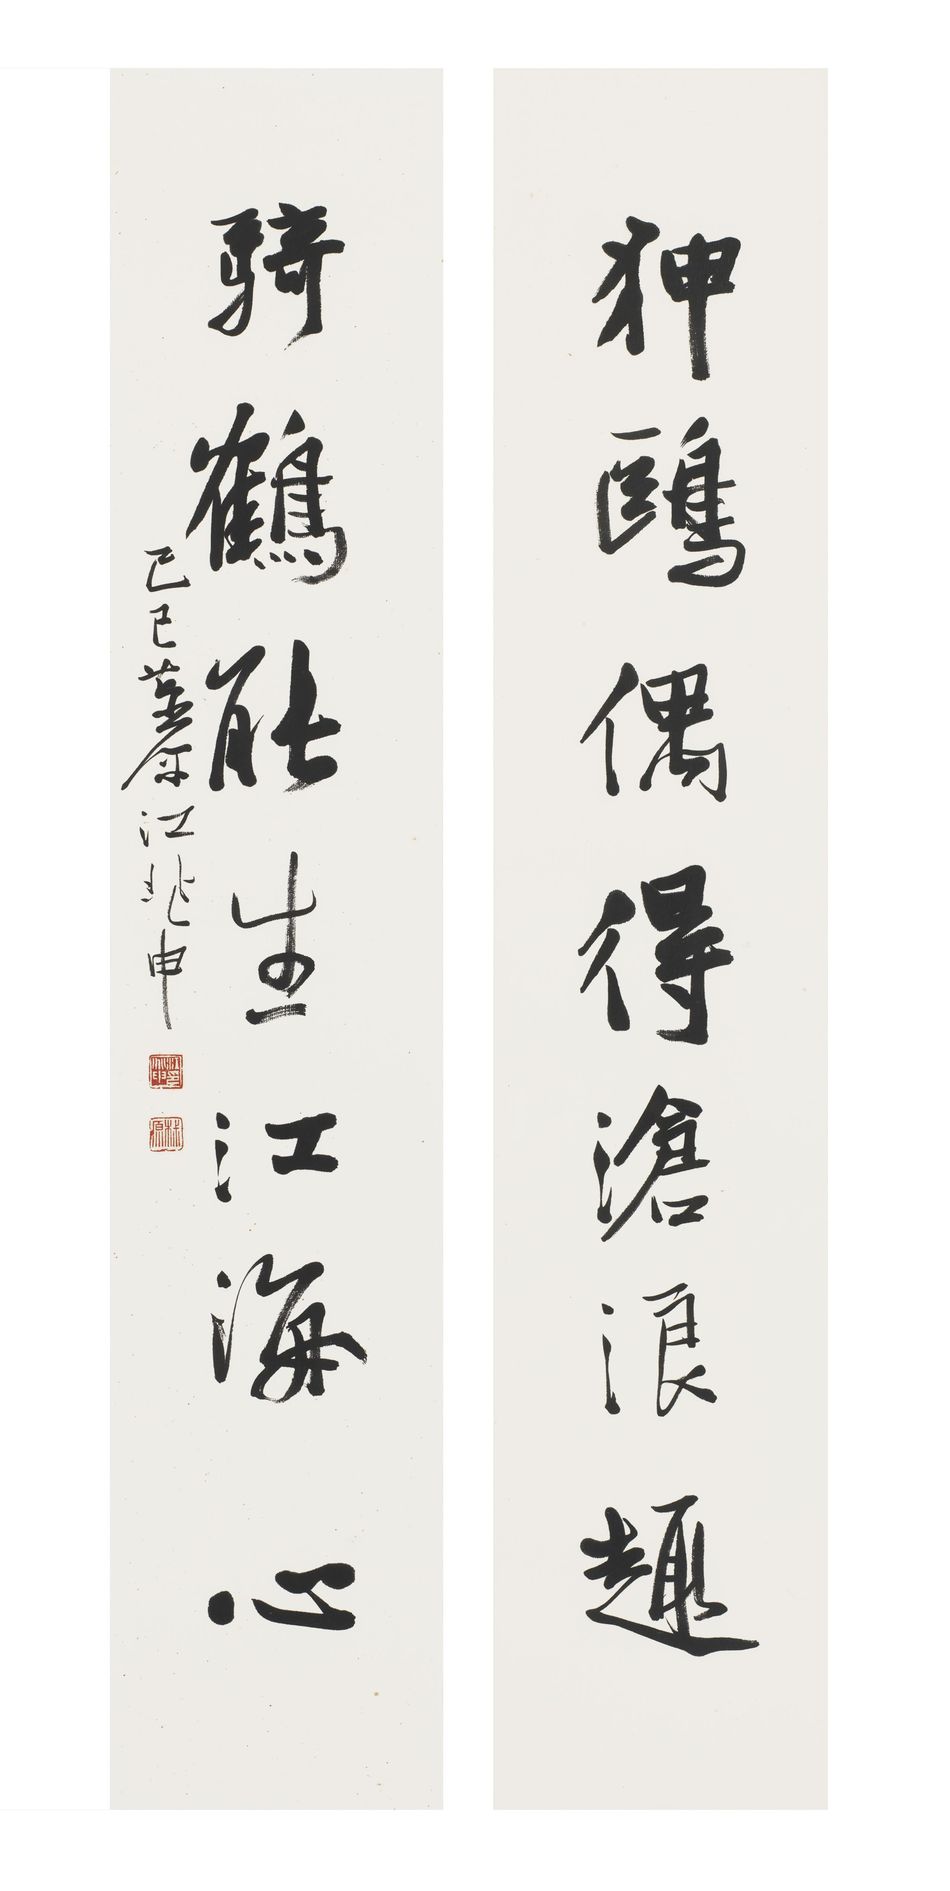 狎鷗偶得滄浪趣
騎鶴能生江海心
己巳暮春江兆申